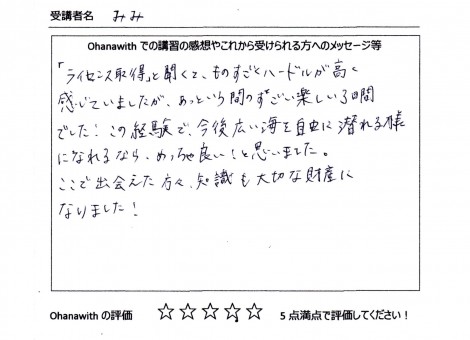 受講者名 みみ
Ohanawith での講習の感想やこれから受けられる方へのメッセージ等
「ライセンス取得」と聞くて、ものすごくハードルが高く
感じていましたが、あっという間のすごい楽しい3日間
でした！この経験で、今後広い海を自由に潜れる様
になれるなら、めっちゃ良い！と思いました。
ここで出会えた方々、知識も大切な財産に
なりました！
Ohanawith の評価 ☆☆☆☆☆ 5 点満点で評価してください！